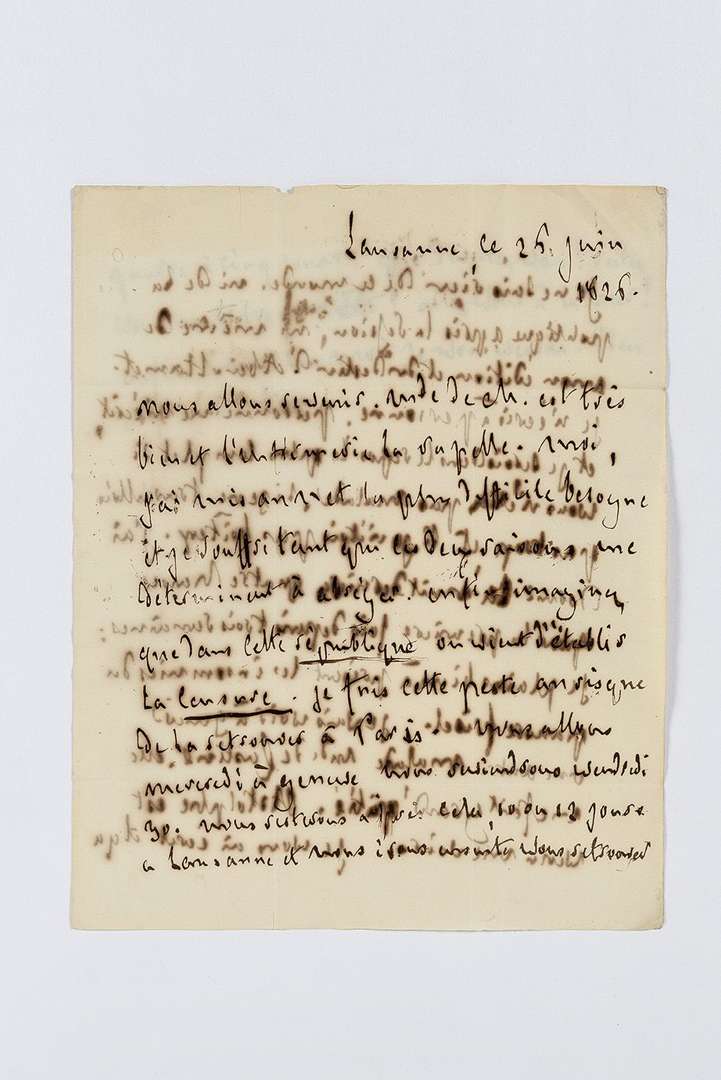 Lausanne, ce 26 juin
1826.
nous allons revenir. Mde de Ch. est très
bien et l'entresol la rapelle. moi,
j'ai mis au net la plus difficile besogne
et je souffre tant que ces deux raisons me
déterminent à abréger. enfin imaginez
que dans cette république on vient d'établir
la censure. je fuis cette peste au risque
de la retrouver à Paris. nous allons
mercredi à Genève nous reviendrons vendredi
30. nous resterons après cela, 10 ou 12 jours
a Lausanne et nous irons ensuite vous retrouver